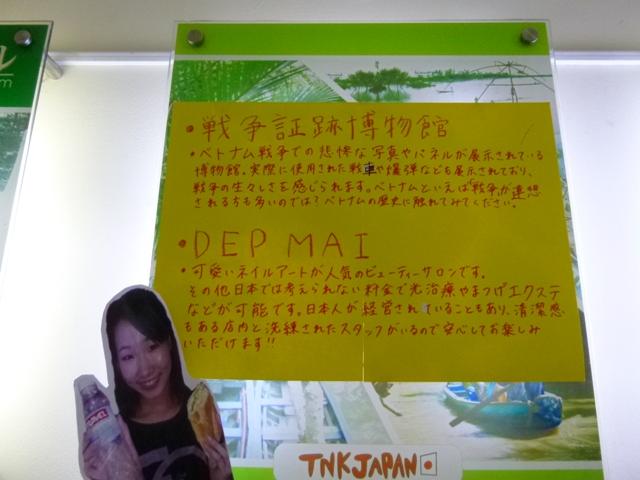 ・戦争証跡博物館
・ベトナム戦争での悲惨な写真やパネルが展示されている
博物館。実際に使用された戦車や爆弾なども展示されており、
戦争の生々しさを感じられます。ベトナムといえば戦争が連想
される方も多いのでは？ベトナムの歴史に触れてみてください。
・DEP MAI
・可愛いネイルアートが人気のビューティーサロンです。
その他日本では考えられない料金で光治療やまつげエクステ
などが可能です。日本人が経営されていることもあり、清潔感
もある店内と洗練されたスタッフがいるので安心してお楽しみ
いただけます!!
TNKJAPAN